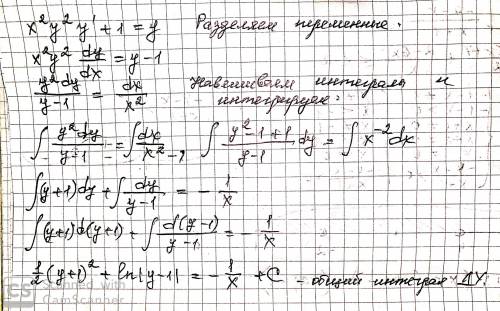 x²y²y' + 1 = y Разделяем переменные.
x²y² dy/dx = y - 1
y²dy/(y-1) = dx/x² Навешиваем интегралы и
интегрируем:
∫ y²dy/(y-1) = ∫ dx/x² → ∫ (y²-1+1)/(y-1) dy = ∫ x⁻² dx
∫(y+1)dy + ∫ dy/(y-1) = - 1/x
∫(y+1)d(y+1) + ∫ d(y-1)/(y-1) = - 1/x
1/2 (y+1)² + ln|y-1| = - 1/x + C - общий интеграл ДУ.
CS Scanned with
CamScanner